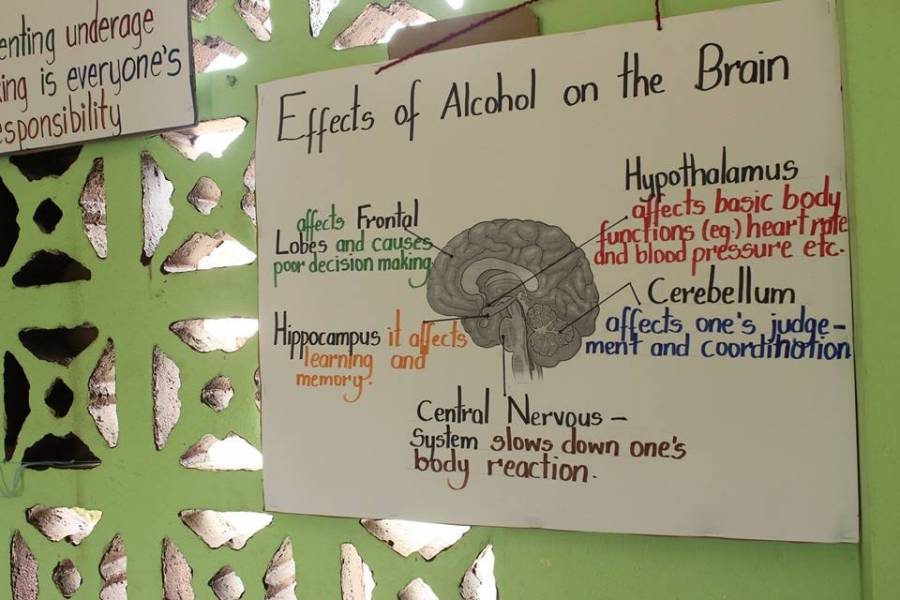 enting underage
ing is everyone's
esponsibility
Effects of Alcohol on the Brain
affects Frontal
Lobes and causes
poor decision making
Hippocampus it affects
learning and
memory.
Hypothalamus
affects basic body
functions (eg.) heart rate
and blood pressure etc.
Cerebellum
affects one's judge-
ment and coordination
Central Nervous -
System slows down one's
body reaction.